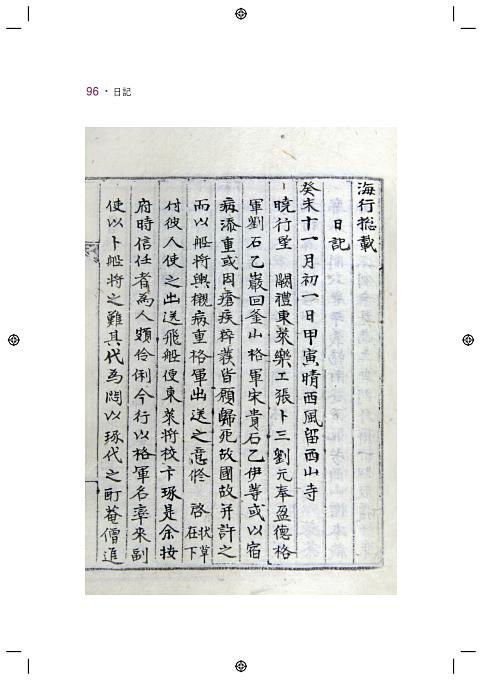 96 · 日記
海行摠載
日記
癸未十一月初一日甲寅晴西風留西山寺
曉行望 闕禮東萊樂工張卜三劉元奉盈德格
軍劉石乙巖回釜山格軍宋貴石乙伊等或以宿
病添重或因瘡疾粹發皆願歸死故國故并許之
而以船將輿櫬病重格軍出送之意修 啓 狀草在下
付彼人使之出送飛船便東萊將校卞琢是余按
府時信任者爲人頗伶俐今行以格軍名率來副
使以卜船將之難其代爲悶以琢代之酊菴僧追